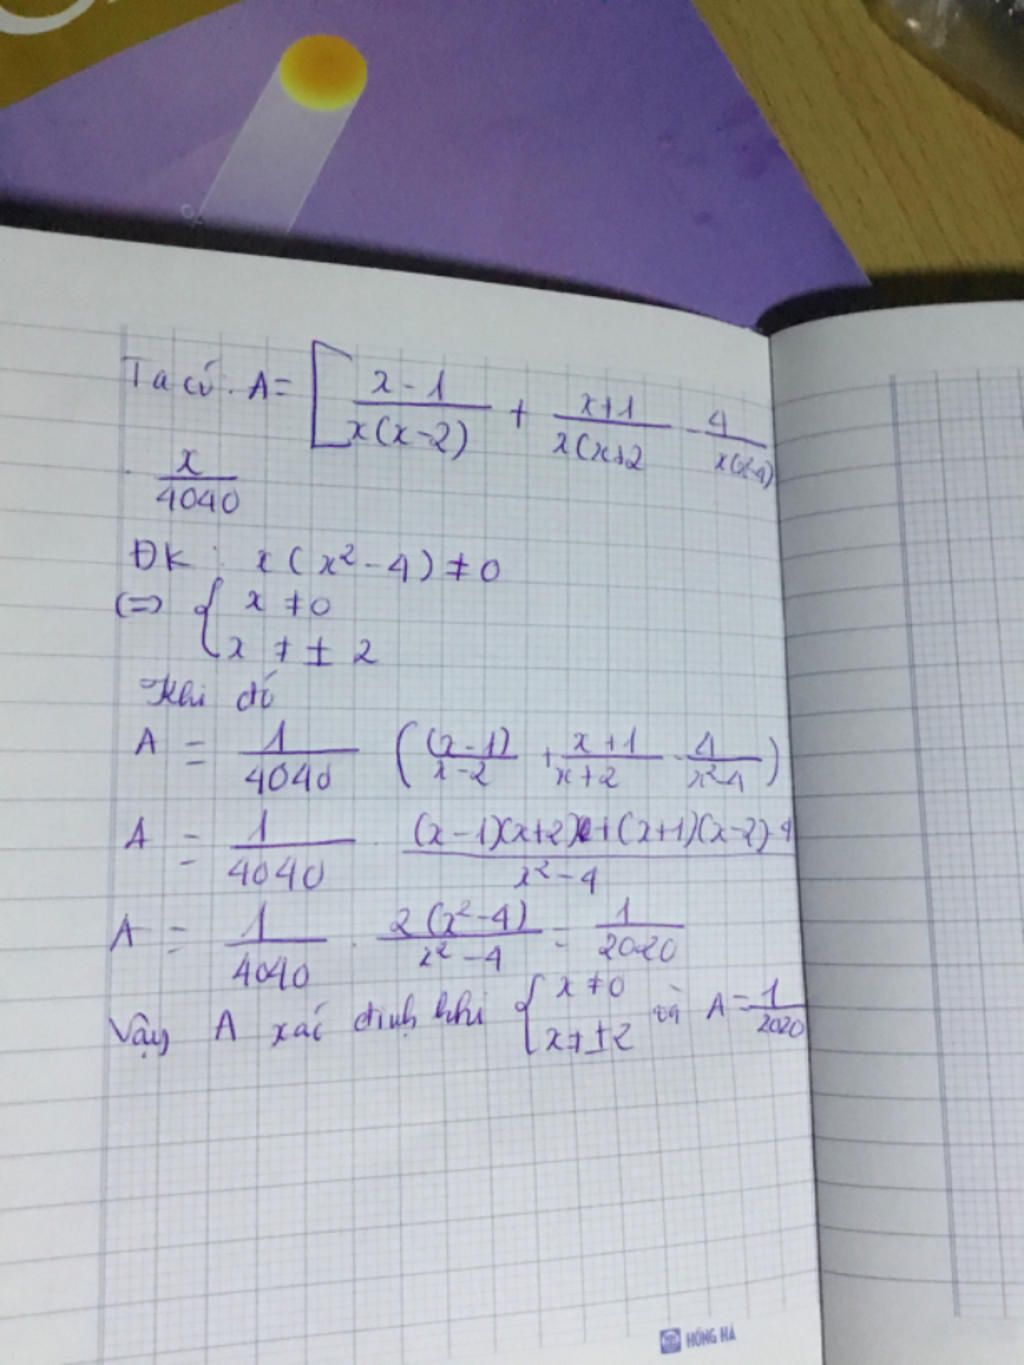 Ta có. A = [ (x-1)/(x(x-2)) + (x+1)/(x(x+2) - 4/(x(x²-4)
. x/4040
ĐK : x(x²-4) ≠ 0
(=) { x ≠ 0
x ≠ ± 2
Khi đó
A = 1/4040 ((x-1)/(x-2) + (x+1)/(x+2) - 4/(x²-4))
A = 1/4040 . ((x-1)(x+2)+(x+1)(x-2)-4)/(x²-4)
A = 1/4040 . 2(x²-4)/(x²-4) = 1/2020
Vậy A xác định khi { x ≠ 0 x ≠ ±2 và A = 1/2020
HỒNG HÀ